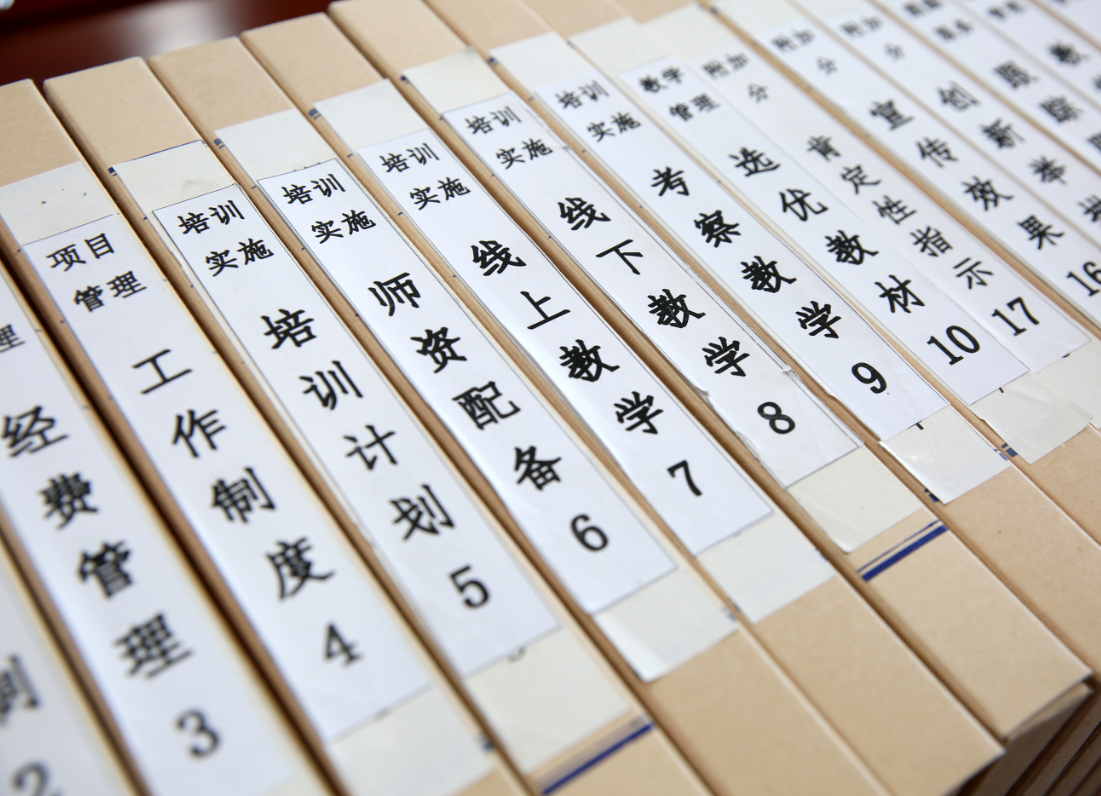 2
理
经费管理
3
项目
管理
工作制度
4
培训
实施
培训计划
5
培训
实施
师资配备
6
培训
实施
线上教学
7
培训
实施
线下教学
8
培训
实施
考察教学
9
教学
管理
选优教材
10
附加
分
肯定性指示
17
附加
分
宣传效果
16
附加
分
创新举
跟踪
教